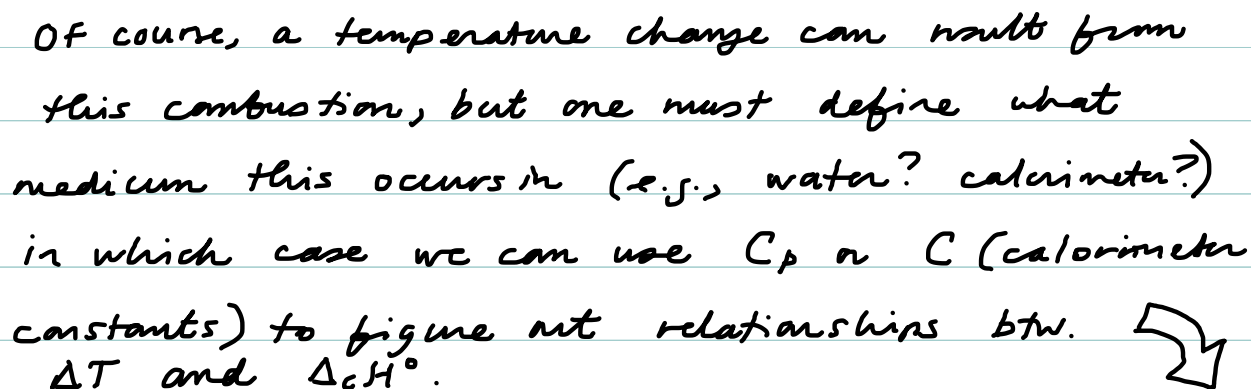 Of course, a temperature change can result from
this combustion, but one must define what
medium this occurs in (e.g., water? calorimeter?)
in which case we can use Cp or C (calorimeter
constants) to figure out relationships btw.
ΔT and ΔcH°.